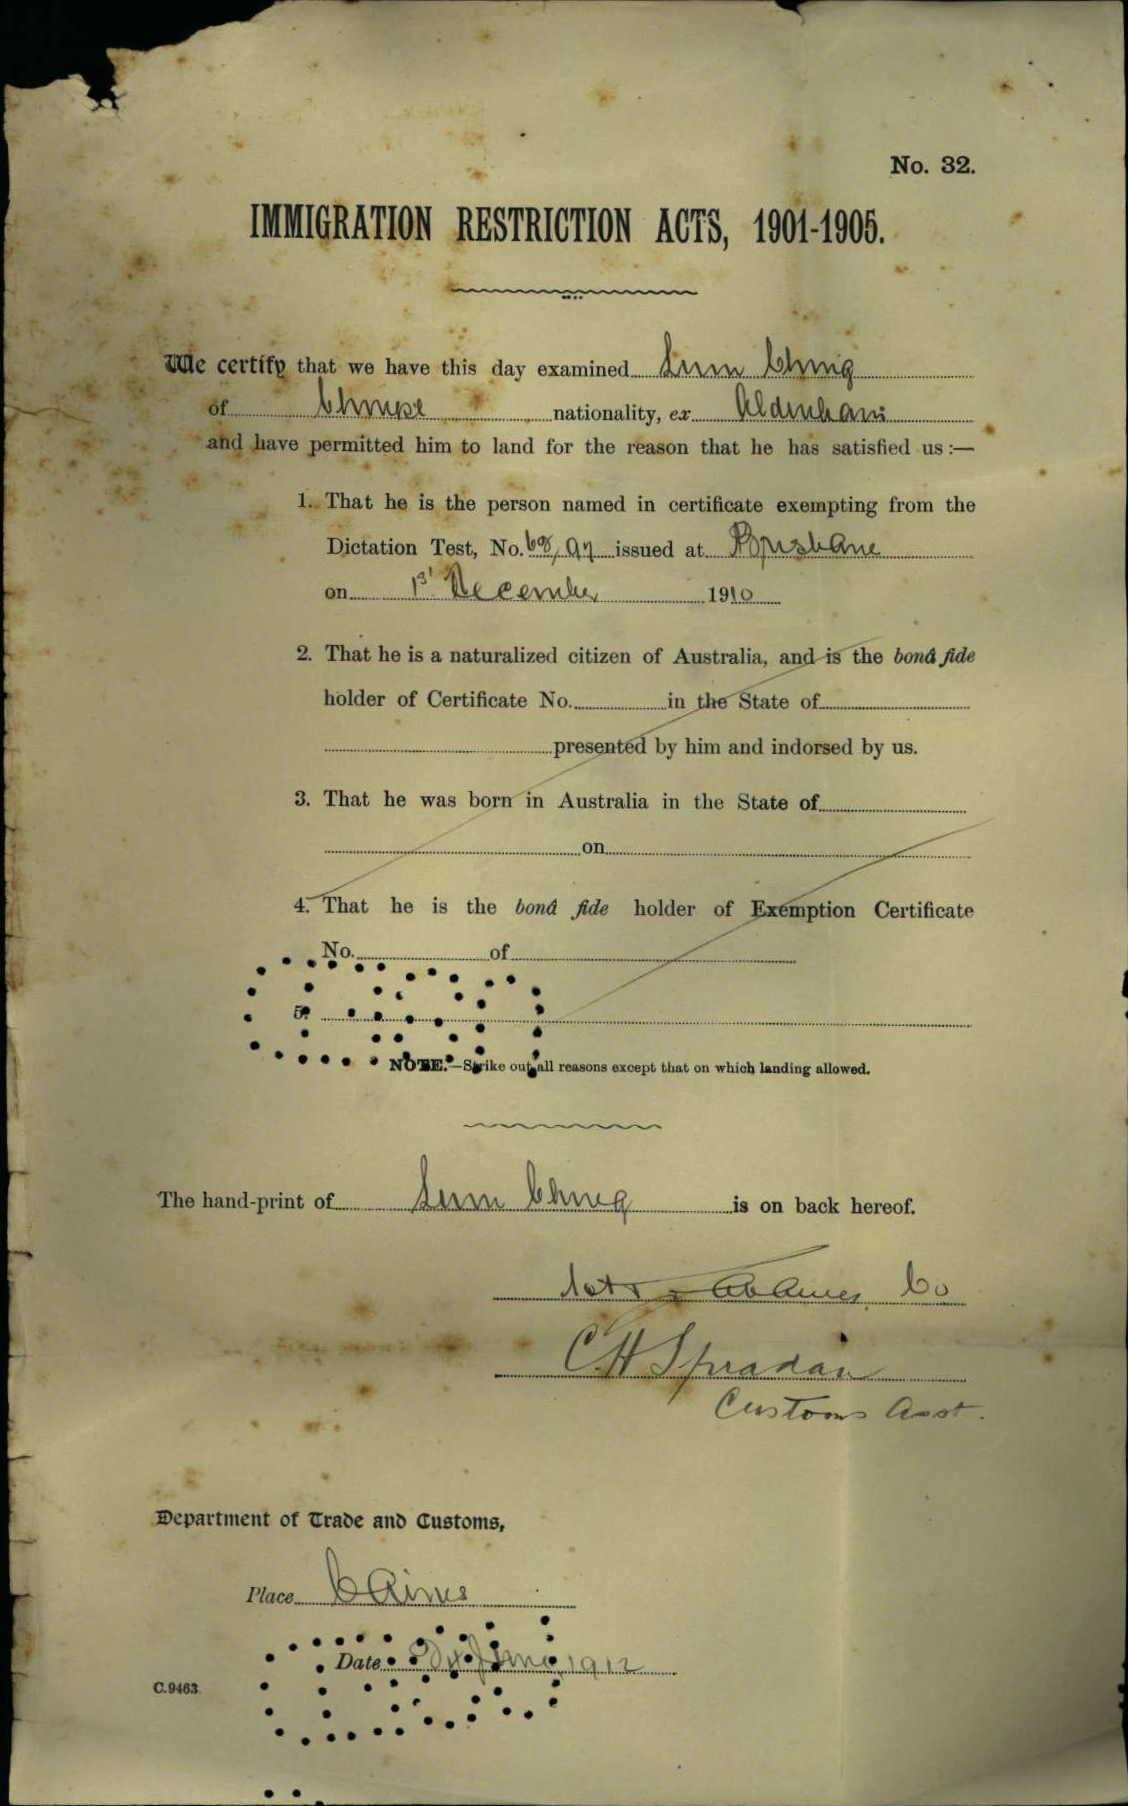 No. 32.
IMMIGRATION RESTRICTION ACTS, 1901-1905.
We certify that we have this day examined Lum Ching
of Chinese nationality, ex Aldenham
and have permitted him to land for the reason that he has satisfied us :—
1. That he is the person named in certificate exempting from the
Dictation Test, No. 68/97 issued at Brisbane
on 1st December 1910
2. That he is a naturalized citizen of Australia, and is the bonâ fide
holder of Certificate No. in the State of
presented by him and indorsed by us.
3. That he was born in Australia in the State of
on
4. That he is the bonâ fide holder of Exemption Certificate
No. of
5.
NOTE.—Strike out all reasons except that on which landing allowed.
The hand-print of Lum Ching is on back hereof.
C H Spradan
Customs Asst.
Department of Trade and Customs,
Place Cairns
Date June 1912
C.9463.